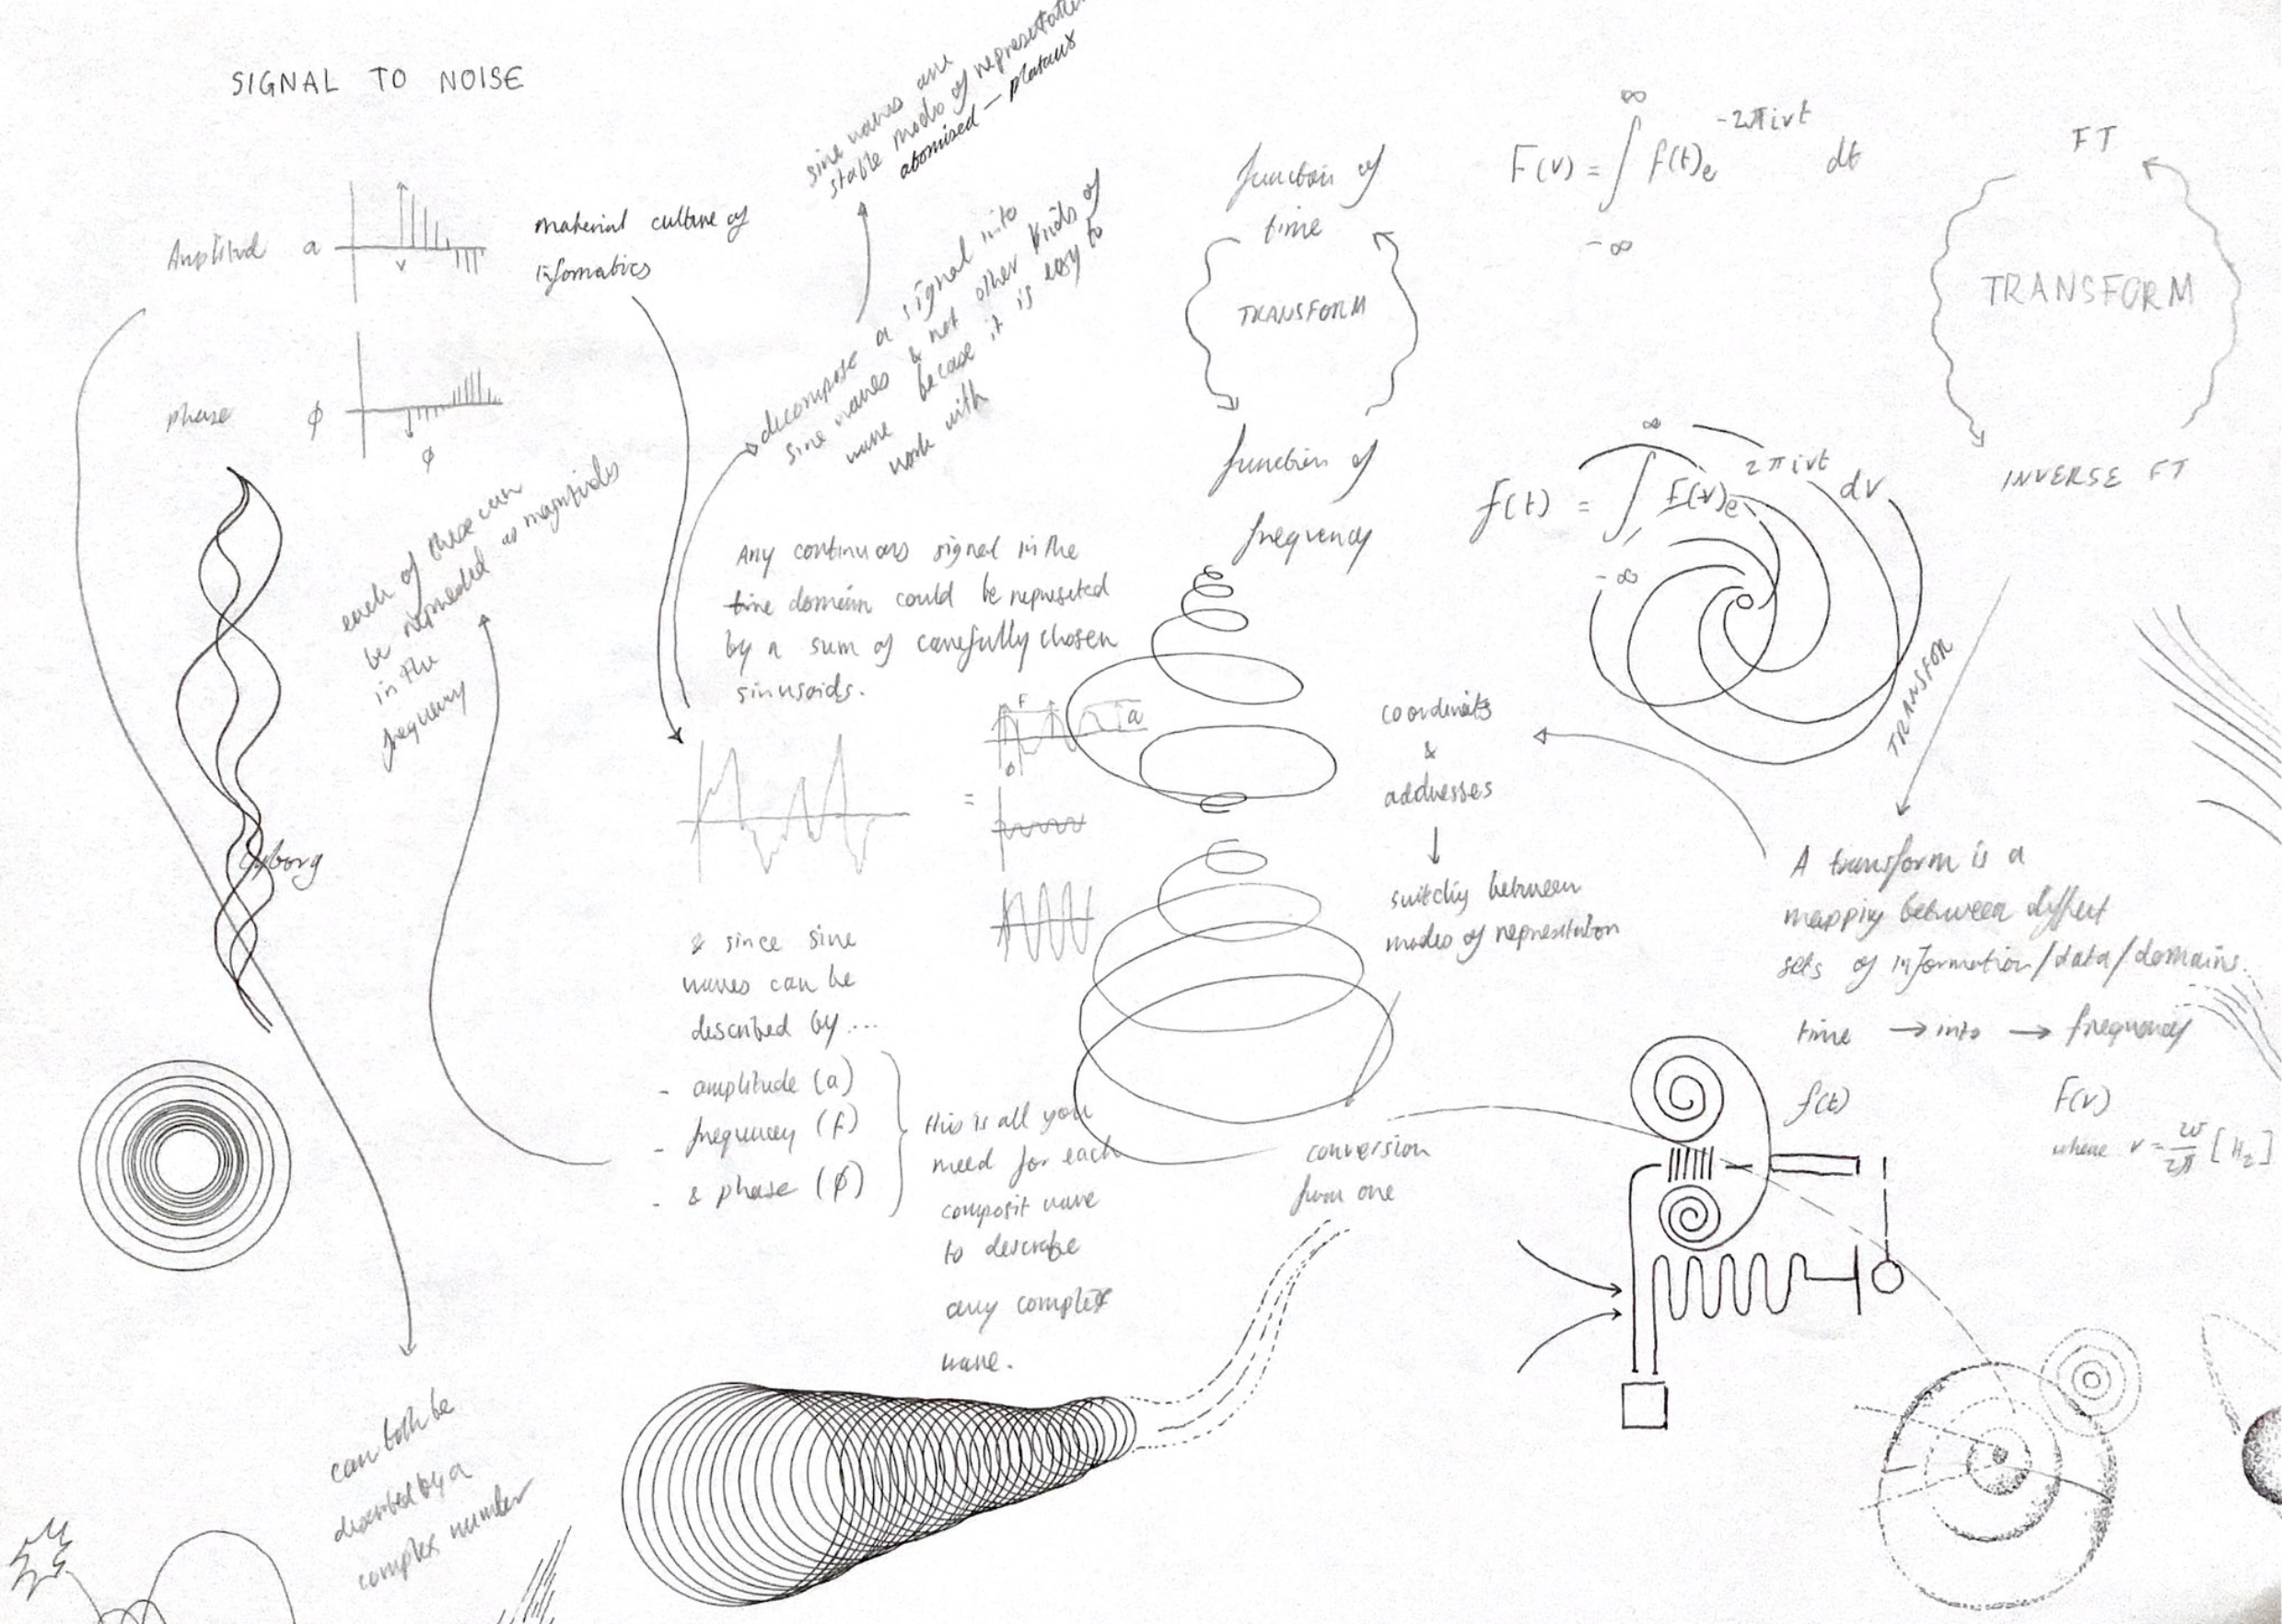 SIGNAL TO NOISE
sine waves are
stable modes of representation
atomised — plataus
Amplitud a
v
material culture of
ifomatics
phase ϕ
ϕ
decompose a signal into
sine waves & not other kinds of
wave becase it is easy to
work with
each of these can
be represeted as magnitudes
in the
frequency
Any continuous signal in the
time domain could be represeted
by a sum of carefully chosen
sinusoids.
=
F
a
ϕ
Cyborg
& since sine
waves can be
described by ...
- amplitude (a)
- frequency (f)
- & phase (ϕ)
this is all you
need for each
composit wave
to describe
any complex
wave.
can both be
described by a
complex number
function of
time
TRANSFORM
function of
frequency
F(v) = ∫ f(t)e -2πivt dt
∞
-∞
FT
TRANSFORM
INVERSE FT
f(t) = ∫ F(v)e 2πivt dv
∞
-∞
TRANSFOR
coordinats
&
addresses
switchig between
modes of represtation
conversion
from one
A transform is a
mappig between diffect
sets of information/data/domains.
time → into → frequency
f(t) F(v)
where v = w/2π [Hz]